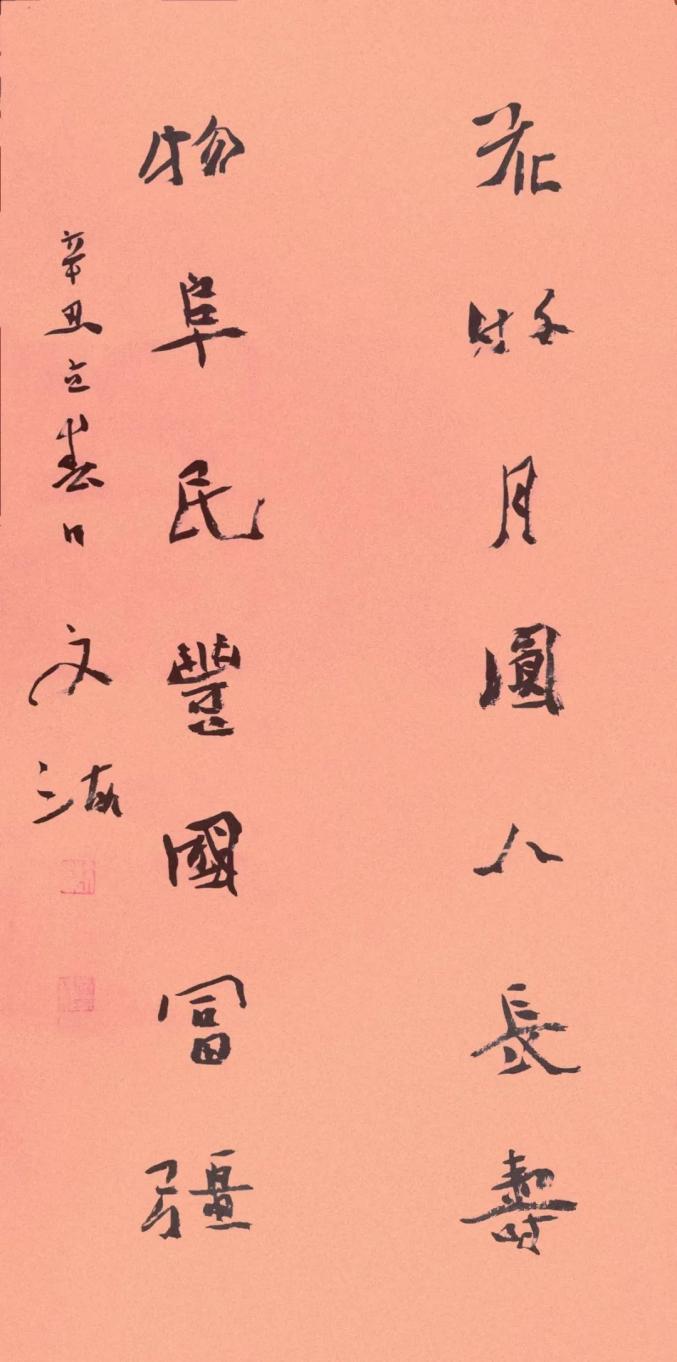 花好月圓人長壽
物阜民豐國富彊
辛丑立春日 文海